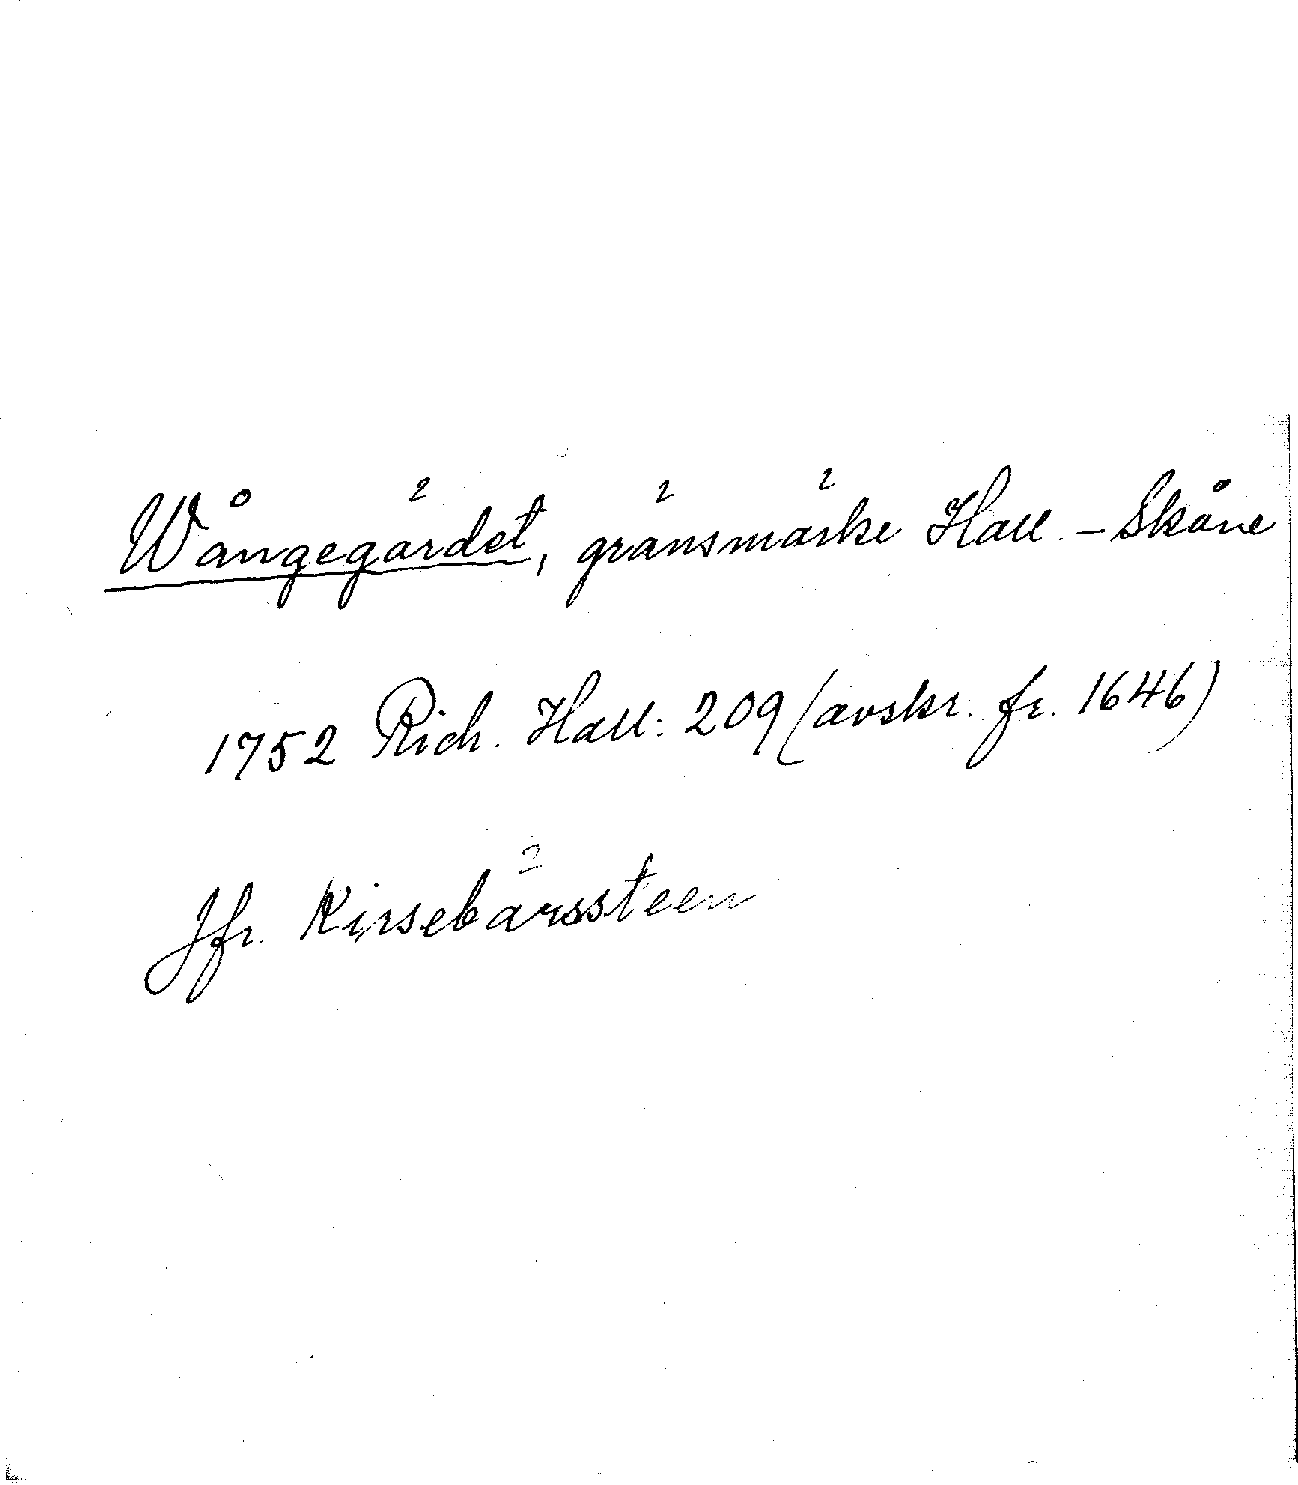 Wångegärdet, gränsmärke Hall. - Skåne
1752 Rich. Hall: 209 (avskr. fr. 1646)
Jfr. Kirsebärssteen